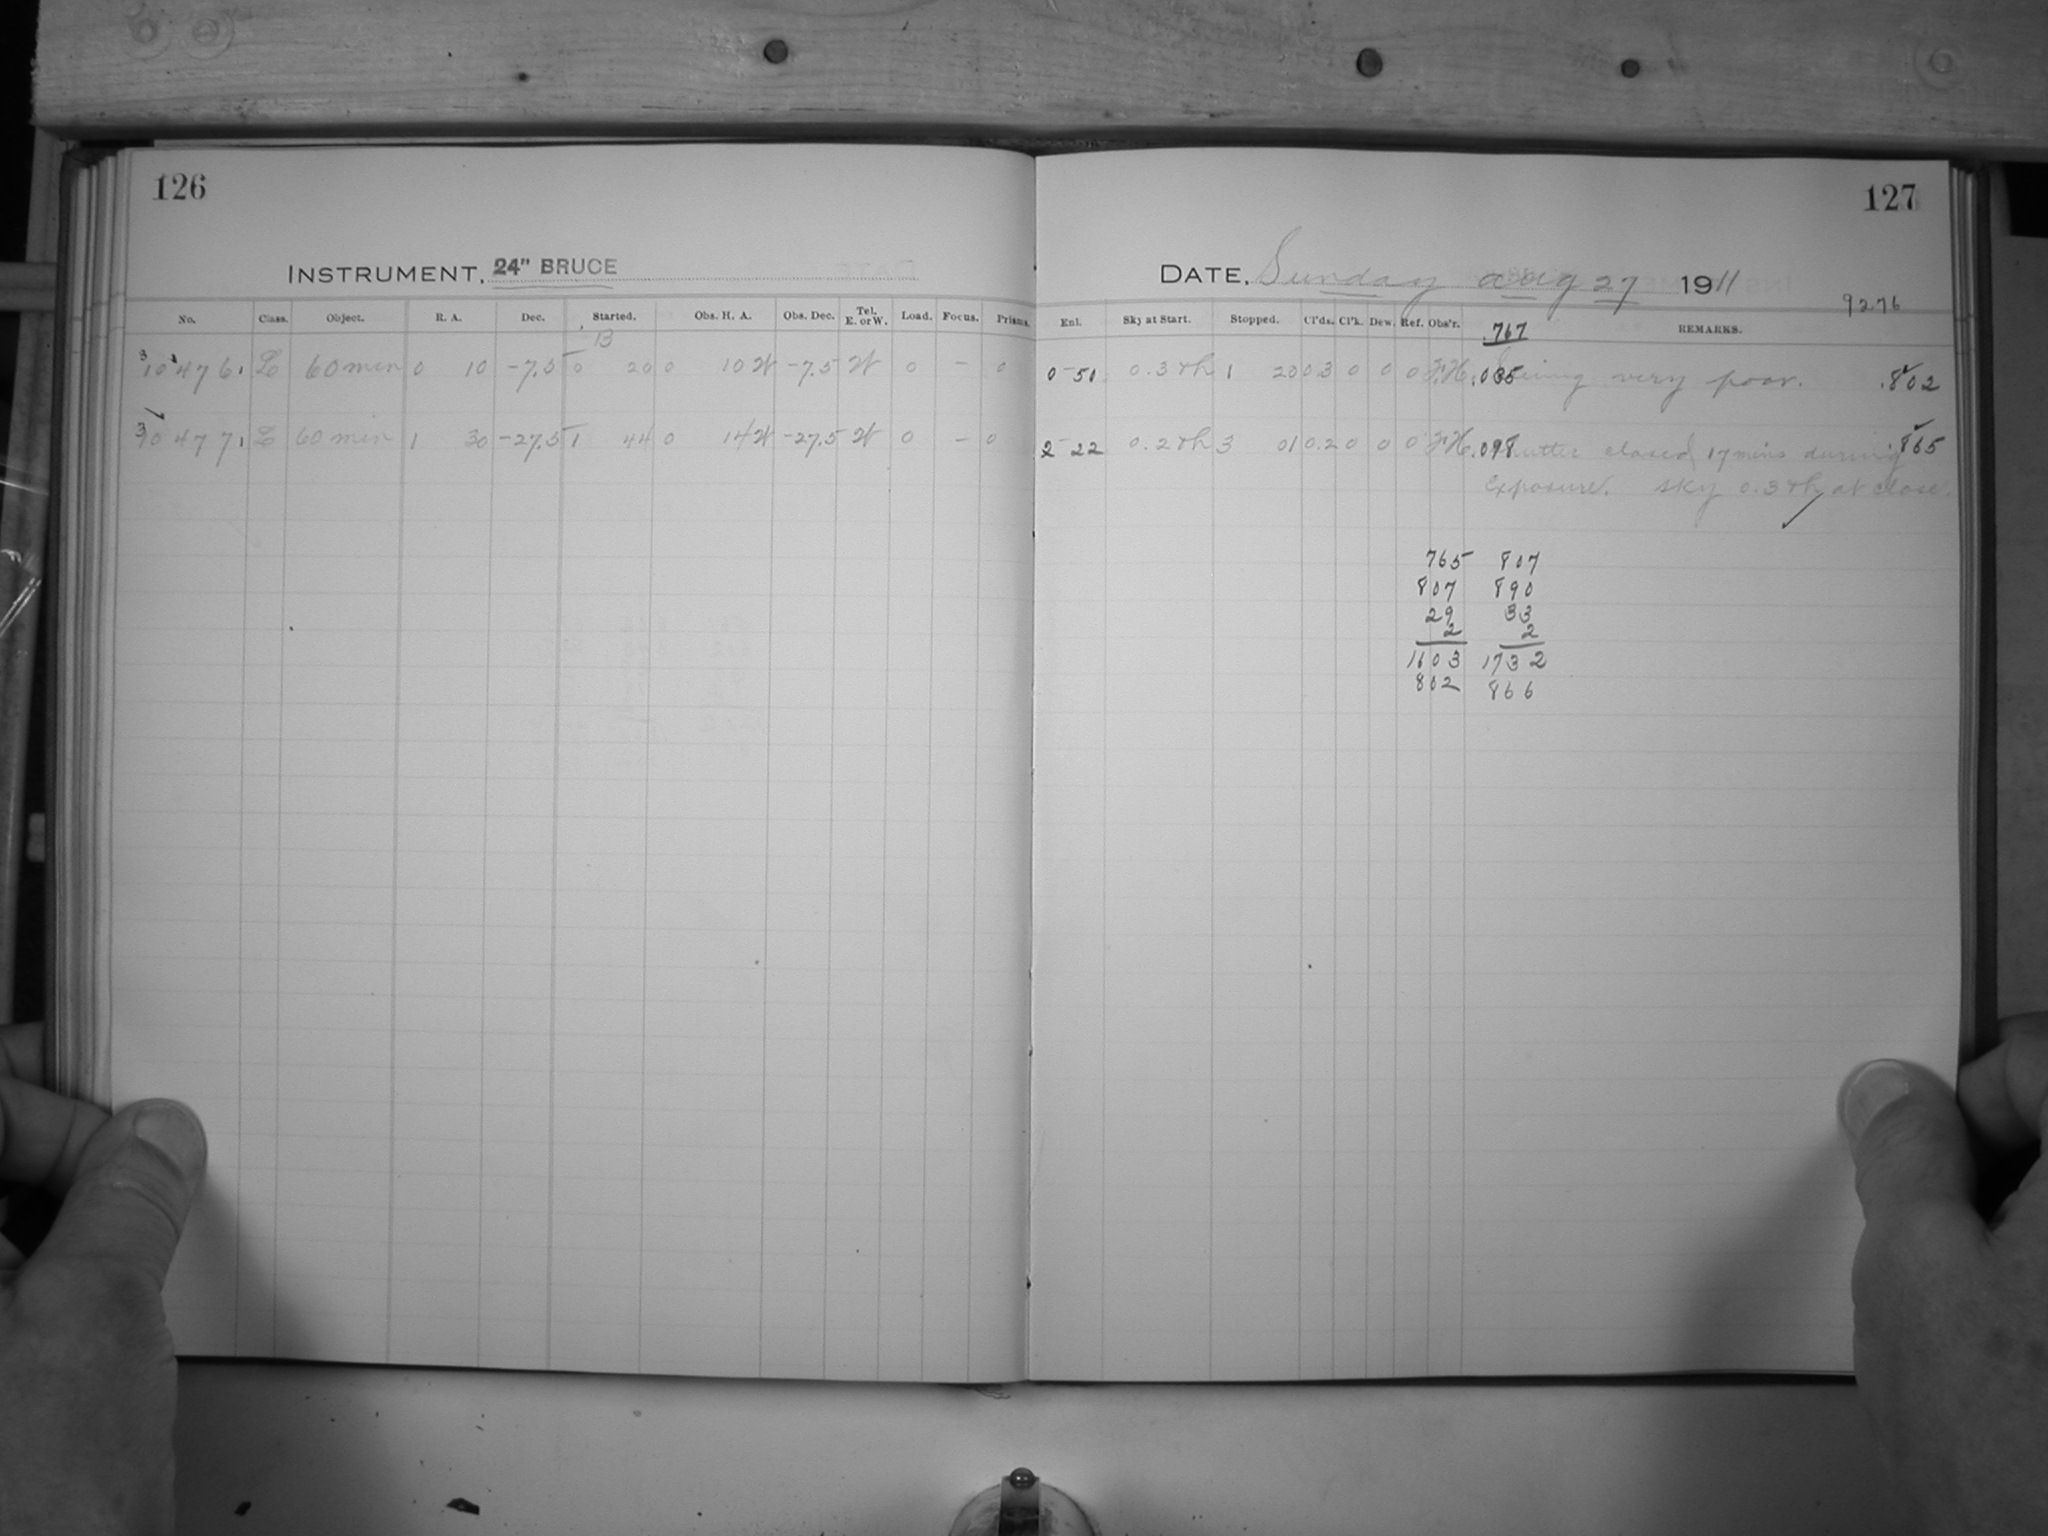 126
127
INSTRUMENT, 24" BRUCE
DATE, Sunday Aug 27 1911
9276
No. Class. Object. R. A. Dec. Started. Obs. H. A. Obs. Dec. Tel. E. or W. Load. Focus. Prisms. Enl. Sky at Start. Stopped. Cl'ds. Cl'k. Dew. Ref. Obs'r. REMARKS.
13 .767
10476 L 60 min 0 10 -7.5 0 20 0 10 W -7.5 W 0 - 0 0 51 0.3 th 1 20 03 0 0 0 .035 Seeing very poor. .802
10477 L 60 min 1 30 -27.5 1 44 0 14 W -27.5 W 0 - 0 2 22 0.2 th 3 01 0.2 0 0 0 .098 Shutter closed 17 mins during .865
exposure. Sky 0.3 th at close.
765 807
807 890
29 33
2 2
1603 1732
802 866